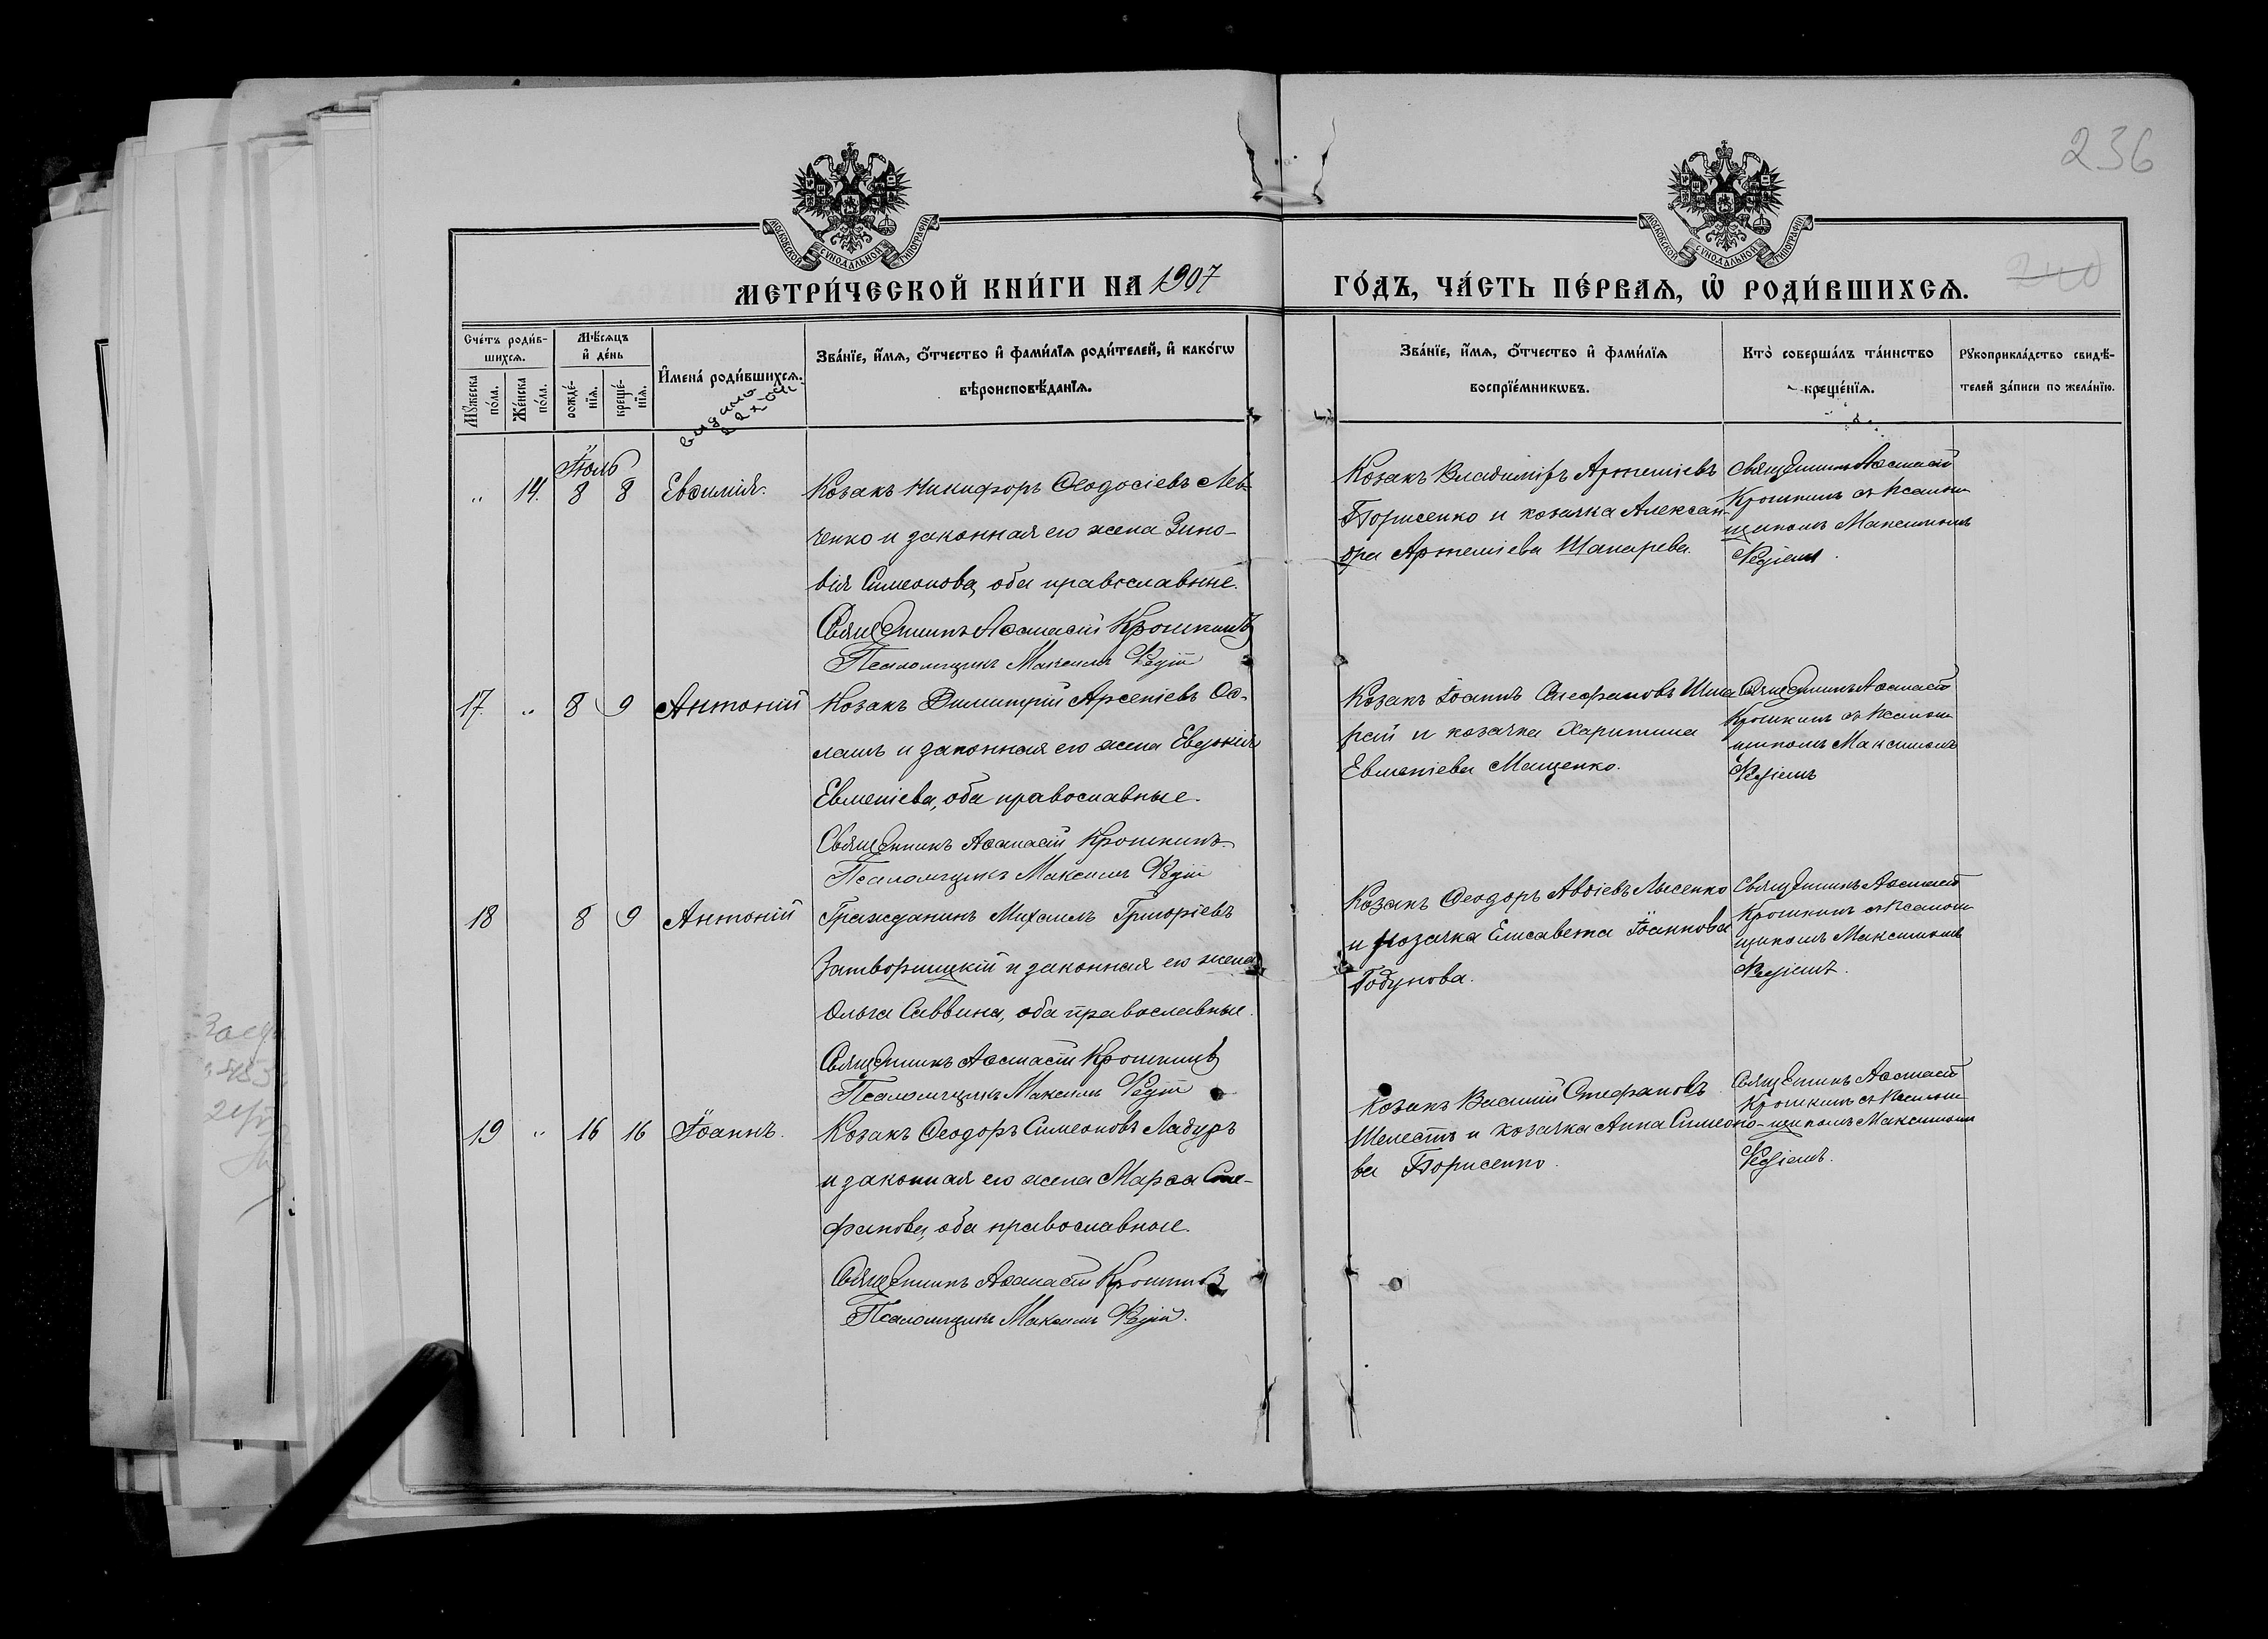 236
МОСКОВСКОЙ СѴНОДАЛЬНОЙ ТИПОГРАФІИ
МОСКОВСКОЙ СѴНОДАЛЬНОЙ ТИПОГРАФІИ
МЕТРИ́ЧЕСКОЙ КНИ́ГИ НА 1907 ГО́ДЪ, ЧА́СТЬ ПЕ́РВАѦ, Ѿ РОДИ́ВШИХСѦ.
240
Сче́тъ роди́в-
шихсѧ.
Мꙋ́жеска по́ла.
Же́нска по́ла.
Мѣ́сѧцъ
и҆ де́нь
рожде́-
нїѧ.
креще́-
нїѧ.
И҆мена́ роди́вшихсѧ.
Зва́нїе, и҆́мѧ, ѻ҆́тчество и҆ фами́лїѧ роди́телей, и҆ како́гѡ
вѣроисповѣ́данїѧ.
Зва́нїе, и҆́мѧ, ѻ҆́тчество и҆ фами́лїѧ
воспрїе́мникѡвъ.
Кто̀ соверша́лъ та́инство
креще́нїѧ.
Рꙋкоприкла́дство свидѣ́-
телей за́писи по жела́нїю.
Іюль
„ 14. 8 8 Евѳимія.
Козакъ Никифоръ Ѳеодосіевъ Лев-
ченко и законная его жена Зино-
вія Симеонова, оба православные.
Священникъ Аѳанасій Крошкинъ
Псаломщикъ Максимъ Редій
Козакъ Владиміръ Артеміевъ
Борисенко и козачка Алексан-
дра Артеміева Шапарева.
Священникъ Аѳанасій
Крошкинъ съ псалом-
щикомъ Максимомъ
Редіемъ.
17. „ 8 9 Антоній
Козакъ Димитрій Арсеніевъ Ос-
лашъ и законная его жена Евдокія
Евменіева, оба православные.
Священникъ Аѳанасій Крошкинъ
Псаломщикъ Максимъ Редій
Козакъ Іоаннъ Стефановъ Шпа
рай и козачка Харитина
Евменіева Мащенко.
Священникъ Аѳанасій
Крошкинъ съ псалом-
щикомъ Максимомъ
Редіемъ
18 8 9 Антоній
Гражданинъ Михаилъ Григоріевъ
Затворницкій и законная его жена
Ольга Саввина, оба православные.
Священникъ Аѳанасій Крошкинъ
Псаломщикъ Максимъ Редій
Козакъ Ѳеодоръ Авдіевъ Лысенко
и козачка Елисавета Іоаннова
Годунова.
Священникъ Аѳанасій
Крошкинъ съ псалом-
щикомъ Максимомъ
Редіемъ.
19 „ 16 16 Іоаннъ.
Козакъ Ѳеодоръ Симеоновъ Ладуръ
и законная его жена Марѳа Сте-
фанова, оба православные.
Священникъ Аѳанасій Крошкинъ
Псаломщикъ Максимъ Редій.
Козакъ Василій Стефановъ
Шелестъ и козачка Анна Симеоно-
ва Борисенко.
Священникъ Аѳанасій
Крошкинъ съ псалом-
щикомъ Максимомъ
Редіемъ.